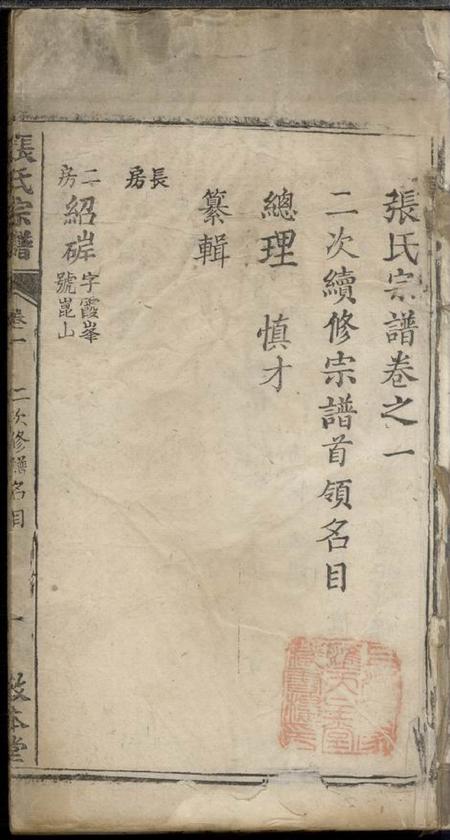 張氏宗譜卷之一
二次續修宗譜首領名目
總理 慎才
纂輯
長房
二房 紹𡶴 字霞峯 號崑山
張氏宗譜 卷一 二次修譜名目 一 敦本堂